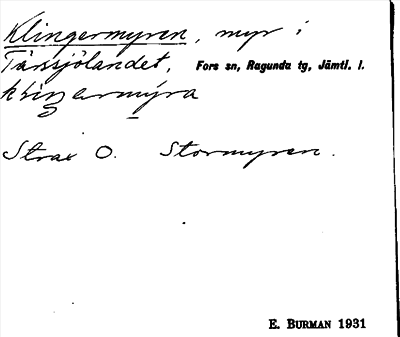 Klingermyren, myr i
Tärsjölandet, Fors sn, Ragunda tg, Jämtl. l.
Strax O. Stormyren.
E. BURMAN 1931